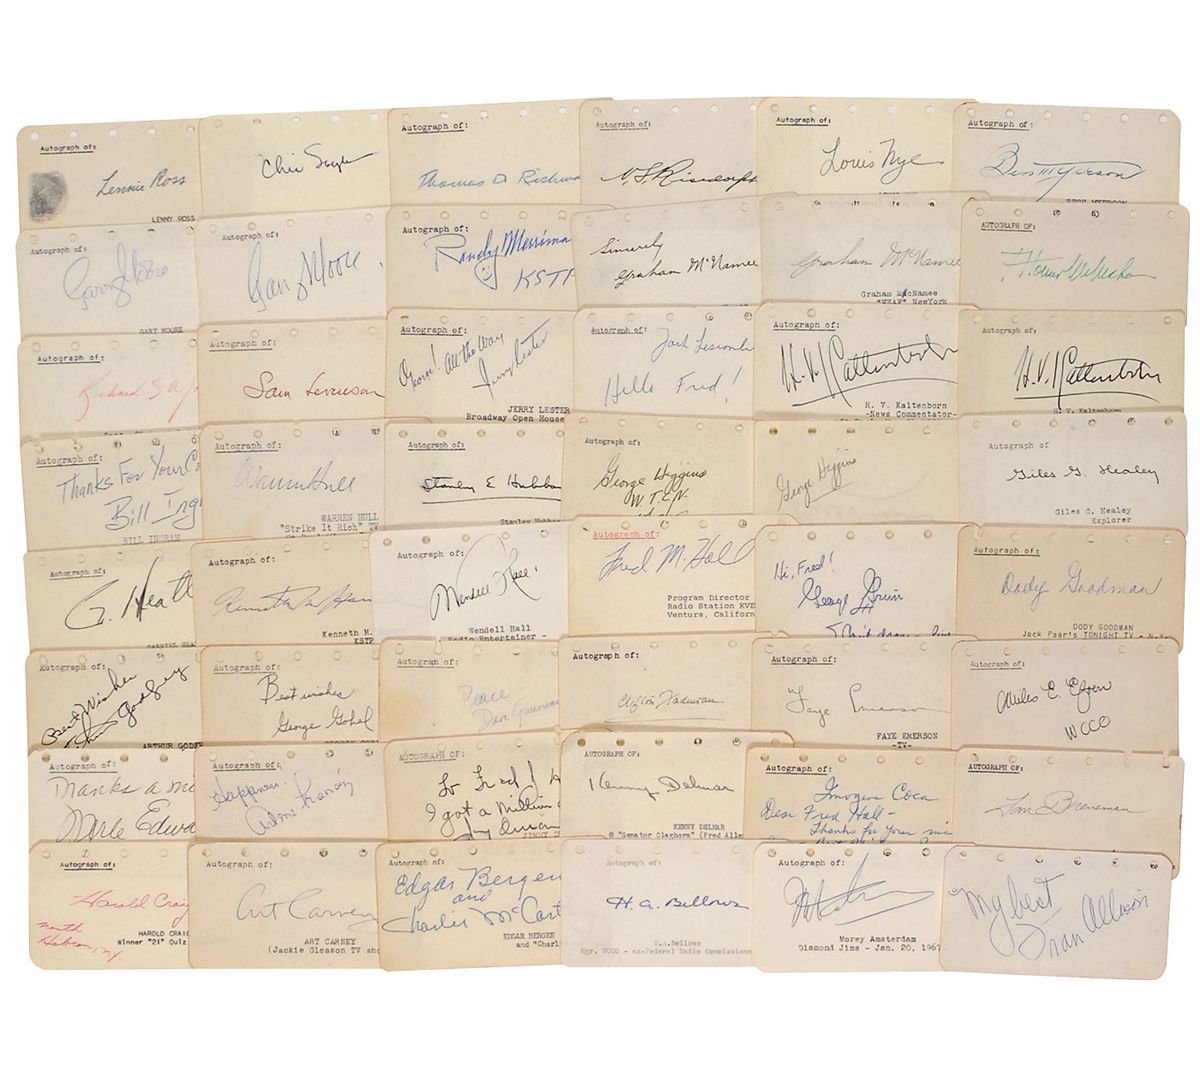 Autograph of:
Lennie Ross
LENNY ROSS
Autograph of:
Thomas D
Autograph of:
Autograph of:
Louis Nye
Autograph of:
Autograph of:
Garry Moore
GARY MOORE
Autograph of:
Gary Moore
Autograph of:
Randy Merriman
KSTP
Sincerely
Graham McNamee
Graham McNamee
Graham McNamee
"WEAF" NewYork
AUTOGRAPH OF:
Autograph of:
Richard S
Autograph of:
Sam Levenson
Autograph of:
George! All the Way
Jerry Lester
JERRY LESTER
Broadway Open House
Autograph of:
Jack Lescoulie
Hello Fred!
Autograph of:
H. V. Kaltenborn
H. V. Kaltenborn
-News Commentator-
Autograph of:
H. V. Kaltenborn
H. V. Kaltenborn
Autograph of:
Thanks For Your
Bill Ingr
BILL INGRAM
Autograph of:
Warren Hull
WARREN HULL
"Strike It Rich" TV
Autograph of:
Stanley E Hubba
Stanley Hubba
Autograph of:
George Higgins
W.T.C.N.
George Higgins
Autograph of
Giles G. Healey
Giles G. Healey
Explorer
Autograph of:
Heatt
Autograph of:
Kenneth M.
KSTP
Autograph of:
Wendell Hall
Wendell Hall
Radio Entertainer -
Autograph of:
Fred M. Hal
Program Director
Radio Station KVE
Ventura, Californ
Hi, Fred!
Autograph of:
Dody Goodman
DODY GOODMAN
Jack Paar's TONIGHT TV - N.Y.
Autograph of:
Best Wishes
Arthur Godfrey
ARTHUR GODF
Autograph of:
Best wishes
George Gobel
GEORGE GOBEL
Autograph of:
Peace
Dave Garroway
Autograph of:
Clifton Fadiman
Autograph of:
Faye Emerson
FAYE EMERSON
-TV-
Autograph of:
WCCO
Autograph of:
Thanks a mi
Autograph of:
Happiness!
Arlene Francis
AUTOGRAPH OF:
To Fred!
I got a million
Jimmy Duran
JIMMY D
AUTOGRAPH OF:
Kenny Delmar
KENNY DELMAR
"Senator Claghorn" (Fred Alle
Autograph of:
Imogene Coca
Dear Fred Hall-
Thanks for your nice
AUTOGRAPH OF:
Tom Breneman
Autograph of:
Harold Craig
North
Hebron, N.Y
HAROLD CRAIG
Winner "21" Quiz
Autograph of:
Art Carney
ART CARNEY
(Jackie Gleason TV sho
Autograph of:
Edgar Bergen
and
Charlie McCart
EDGAR BERGEN
and "Charl
Autograph of:
H. A. Bellows
H.A.Bellows
Mgr. WCCO - ex-Federal Radio Commissione
Autograph of:
Morey Amsterdam
Diamond Jims - Jan. 20, 1967
My best
Fran Allison